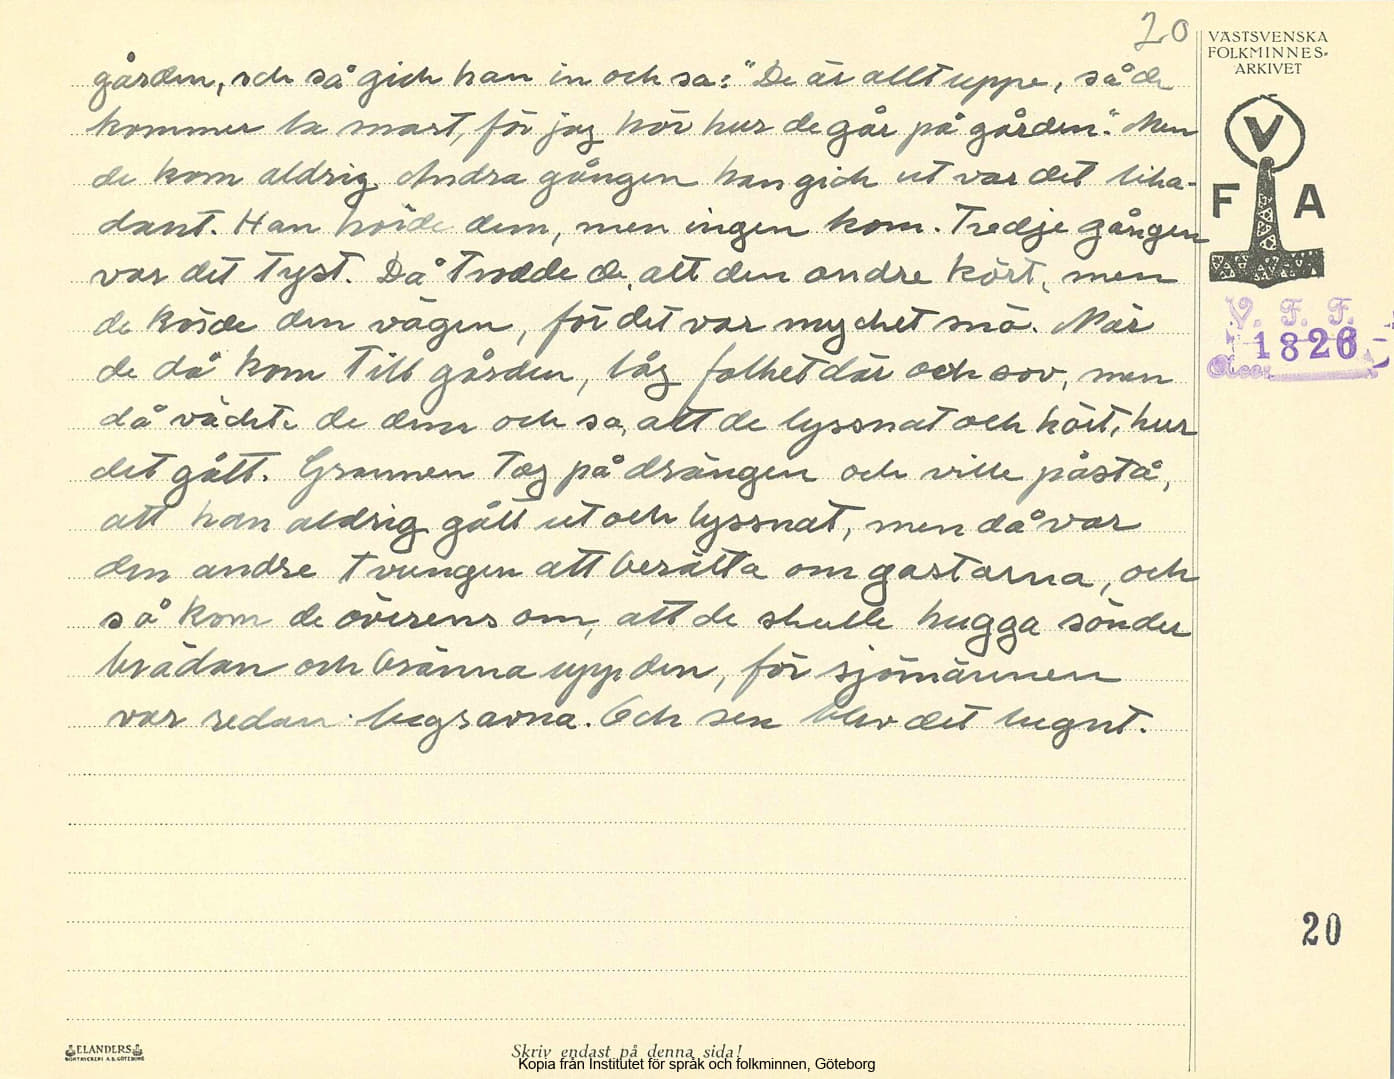 20
VÄSTSVENSKA
FOLKMINNES-
ARKIVET
V
F A
V. F. F.
1826
Acc.
gården, och så gick han in och sa: "De är allt uppe, så de
kommer la snart, för jag hör hur de går på gården." Men
de kom aldrig. Andra gången han gick ut var det lika-
dant. Han hörde dem, men ingen kom. Tredje gången
var det tyst. Då trodde de, att den andre kört, men
de körde den vägen, för det var mycket snö. När
de då kom till gården, låg folket där och sov, men
då väckte de dem och sa, att de lyssnat och hört, hur
det gått. Grannen tog på drängen och ville påstå,
att han aldrig gått ut och lyssnat, men då var
den andre tvungen att berätta om gastarna, och
så kom de överens om, att de skulle hugga sönder
brädan och bränna upp den, för sjömännen
var redan begravna. Och sen blev det lugnt.
20
ELANDERS
BOKTRYCKERI A.B. GÖTEBORG
Skriv endast på denna sida!
Kopia från Institutet för språk och folkminnen, Göteborg